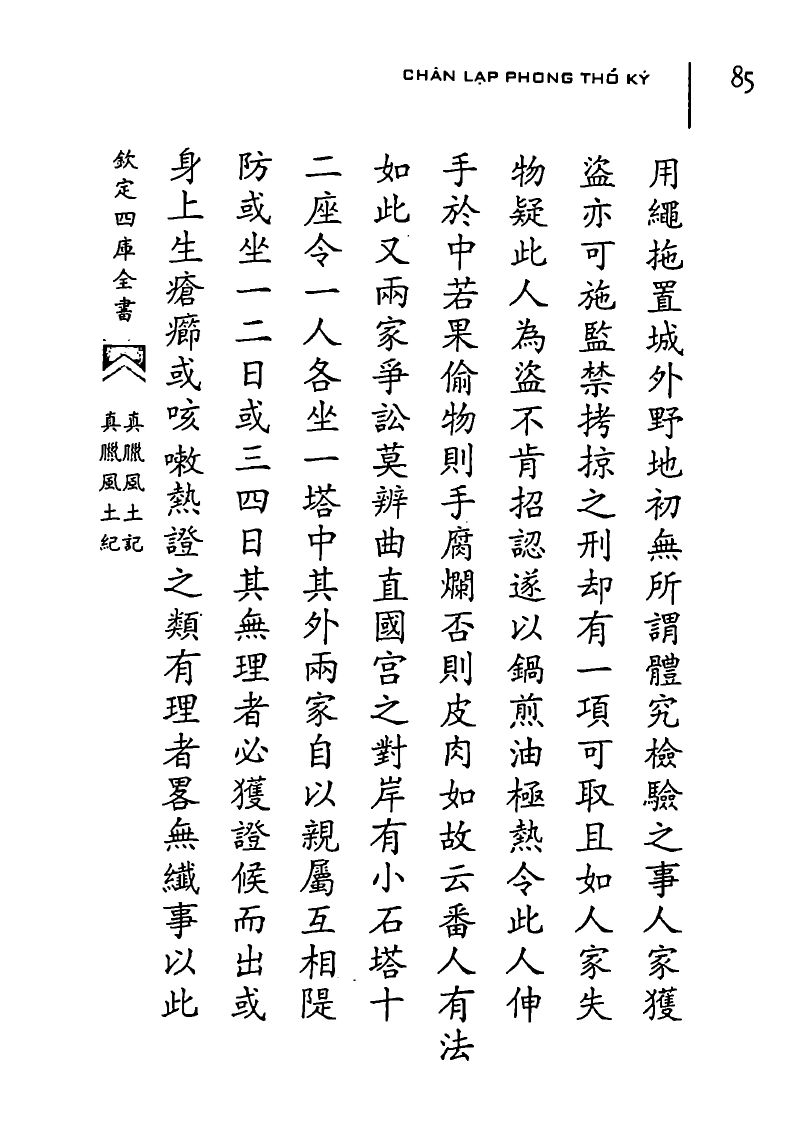 CHÂN LẠP PHONG THỔ KÝ
85
用繩拖置城外野地初無所謂體究檢驗之事人家獲
盜亦可施監禁拷掠之刑却有一項可取且如人家失
物疑此人為盜不肯招認遂以鍋煎油極熱令此人伸
手於中若果偷物則手腐爛否則皮肉如故云番人有法
如此又兩家爭訟莫辨曲直國宮之對岸有小石塔十
二座令一人各坐一塔中其外兩家自以親屬互相隄
防或坐一二日或三四日其無理者必獲證候而出或
身上生瘡癤或咳嗽熱證之類有理者畧無纖事以此
欽定四庫全書
真臘風土記
真臘風土紀